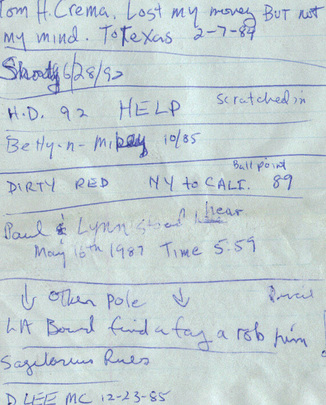 Tom H. Crema. Lost my money BUT not
my mind. To Texas 2-7-84
Shorty 6/28/92
H.D. 92 HELP Scratched in
Betty-n-Mikey 10/85
Ball point
DIRTY RED NY to CALI. 89
Paul & Lynn stood hear
May 16th 1987 Time 5:59
↓ Other Pole ↓
LA Bound find a fag a rob him
Sagitarius Rules
D LEE MC 12-23-85